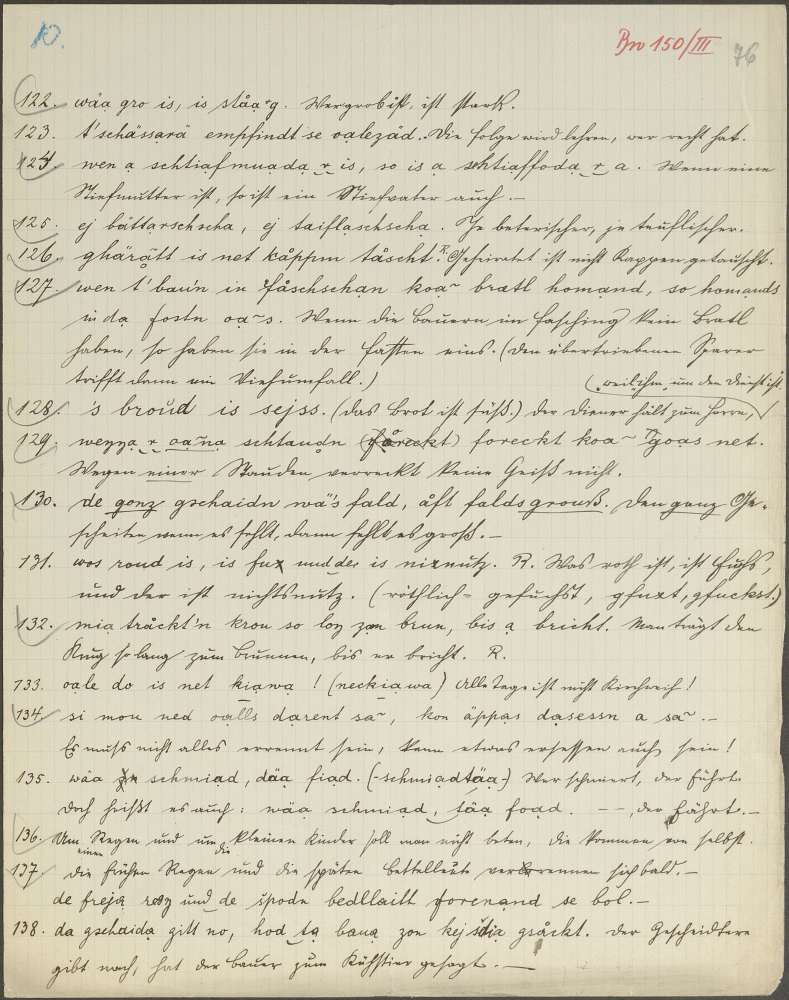 10.
Bn 150/III
76
122. wåa gro is, is ståa r g. Wer grob ist, ist stark.
123. t'schässarä empfindt se oalezäd. Die Folge wird lehren, wer recht hat.
124 wen a schtiafmuada r is, so is a schtiaffoda r a. Wenn eine
Stiefmutter ist, so ist ein Stiefvater auch.—
125. ej båttarschscha, ej taiflaschscha. Je beterischer, je teuflischer.
126. ghärått is net kåppm tåscht. R. Geheiratet ist nicht Kappen getauscht.
127. wen t' baun in fåschschan koa~ bratl homand, so homands
in da fostn oa~s. Wenn die Bauern im Fasching kein Bratl
haben, so haben sie in der Fasten eins. (Den übertriebenen Sparer
trifft dann ein Viehumfall.)
(weil ihm um den Dienst ist.
128. 's broud is sejss. (Das Brot ist süß.) Der Diener hält zum Herrn,
129. wenna r oa~na schtaudn foreckt koa~ goas net.
Wegen einer Stauden verreckt keine Geiß nicht.
130. de gonz gschaidn wä's fald, åft falds grouß. Den ganz Ge-
scheiten wenn es fehlt, dann fehlt es groß.—
131. wos roud is, is fux und der is nixnutz. R. Was roth ist, ist Fuchs,
und der ist nichtsnutz. (röthlich- gefuchst, gfuxt, gfuckst.)
132. mia tråckt'n kron so lon zon brun, bis a bricht. Man trägt den
Krug so lang zum Brunnen, bis er bricht. R.
133. oale do is net kiawa! (neckiawa) Alle Tage ist nicht Kirchweih!
134. si mou ned oalls darent sa~, kon äppas dasessn a sa~.—
Es muß nicht alles errennt sein, kann etwas ersessen auch sein!
135. wåa schmiad, dåa fiad. (-schmiadtåa-) Wer schmiert, der führt.
Doch heißt es auch: wåa schmiad, tåa foad. — —, der fährt.—
136. Um Regen und um kleinen Kinder soll man nicht beten, die kommen von selbst.
einen die
137 Die frühen Regen und die späten Bettelleute verrennen sich bald.—
de freja reng und de spodn bedllaitt forenand se bol.—
138. da gschaida gitt no, hod ta baua zon kejstia gsåckt. Der Gescheidtere
gibt nach, hat der Bauer zum Kühstier gesagt.—